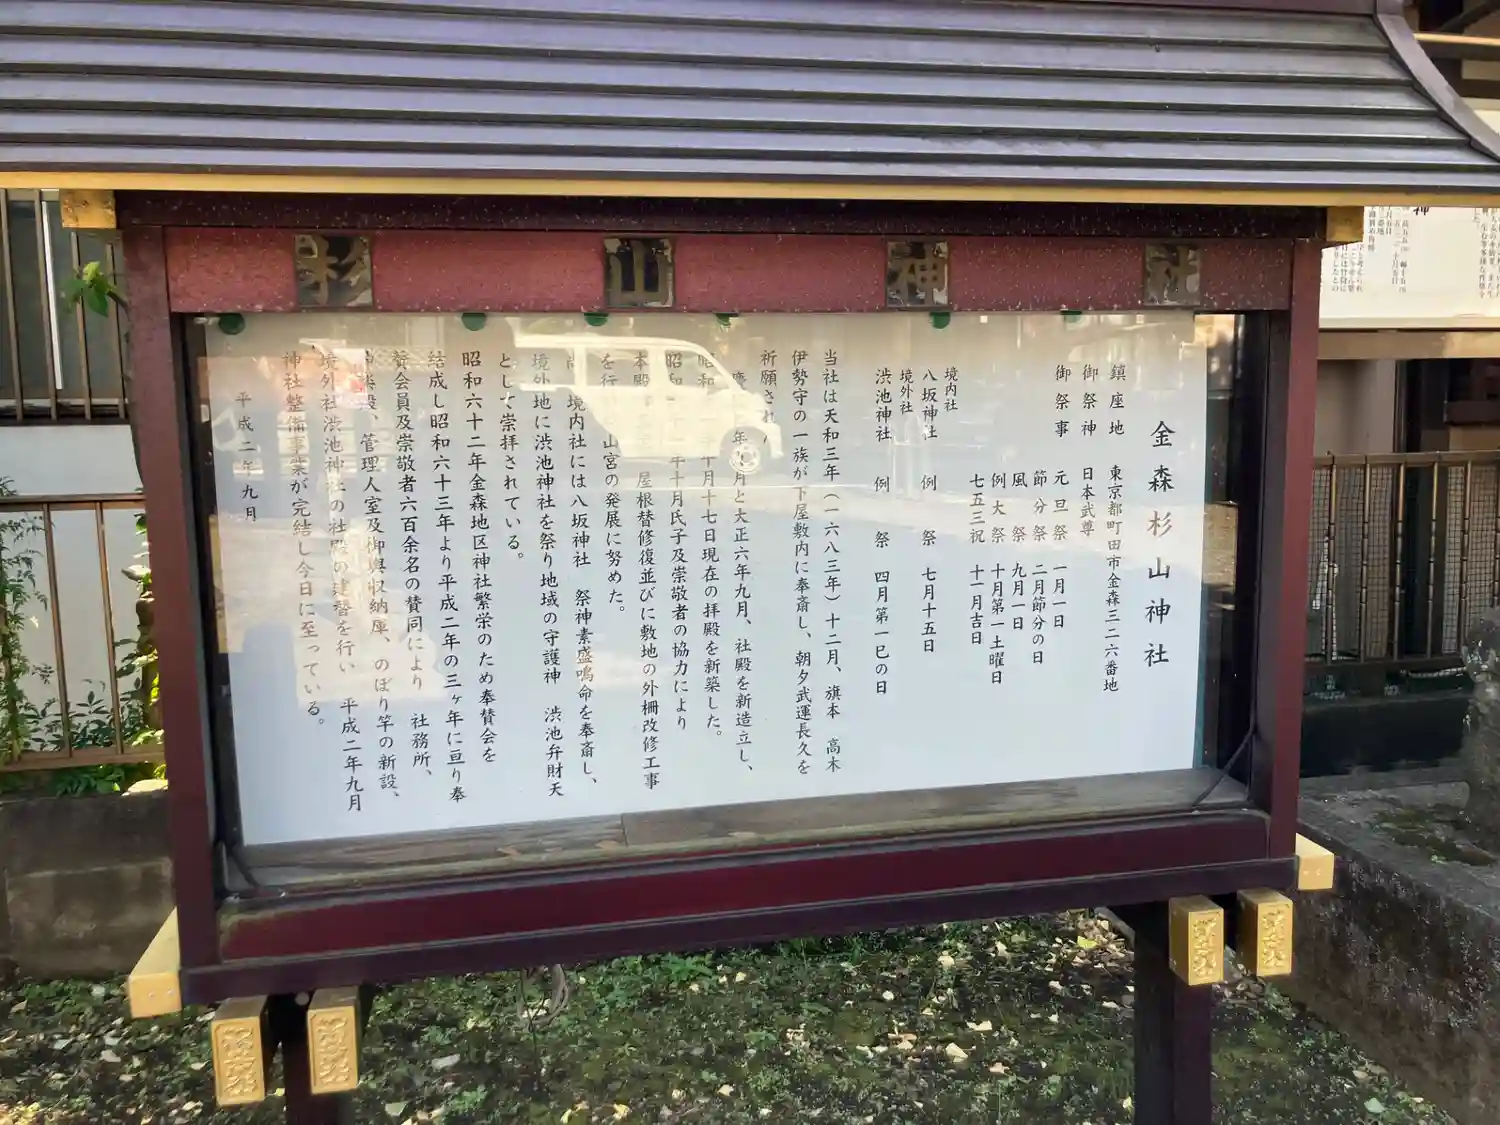 杉山神社
金森杉山神社
鎮座地 東京都町田市金森三二六番地
御祭神 日本武尊
御祭事 元旦祭 一月一日
節分祭 二月節分の日
風祭 九月一日
例大祭 十月第一土曜日
七五三祝 十一月吉日
境内社
八坂神社 例祭 七月十五日
境外社
渋池神社 例祭 四月第一巳の日
当社は天和三年（一六八三年）十二月、旗本 高木
伊勢守の一族が下屋敷内に奉斎し、朝夕武運長久を
祈願された
年 月と大正六年九月、社殿を新造立し、
昭和 年十月十七日現在の拝殿を新築した。
昭和 年十月氏子及崇敬者の協力により
本殿 屋根替修復並びに敷地の外柵改修工事
を行 山宮の発展に努めた。
尚 境内社には八坂神社 祭神素盛鳴命を奉斎し、
境外地に渋池神社を祭り地域の守護神 渋池弁財天
として崇拝されている。
昭和六十二年金森地区神社繁栄のため奉賛会を
結成し昭和六十三年より平成二年の三ヶ年に亘り奉
賛会員及崇敬者六百余名の賛同により 社務所、
管理人室及御輿収納庫、のぼり竿の新設、
境外社渋池神社の社殿の建替を行い 平成二年九月
神社整備事業が完結し今日に至っている。
平成二年九月